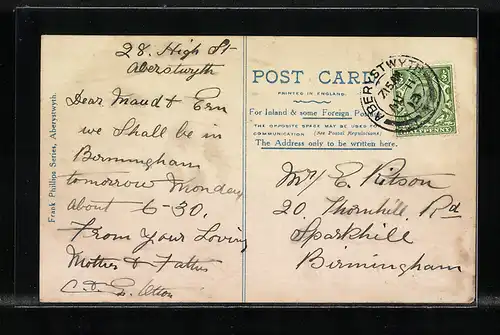 28. High St
Aberstwyth
Dear Maud & Ern
we Shall be in
Birmingham
tomorrow Monday
about 6-30.
From Your Loving
Mother & Father
Frank Phillips Series, Aberystwyth.
POST CARD
PRINTED IN ENGLAND.
For Inland & some Foreign
THE OPPOSITE SPACE MAY BE USED
COMMUNICATION (See Postal Regulations)
The Address only to be written here.
ABERYSTWYTH
Mr E. Kitson
20. Thornhill Rd
Sparkhill
Birmingham